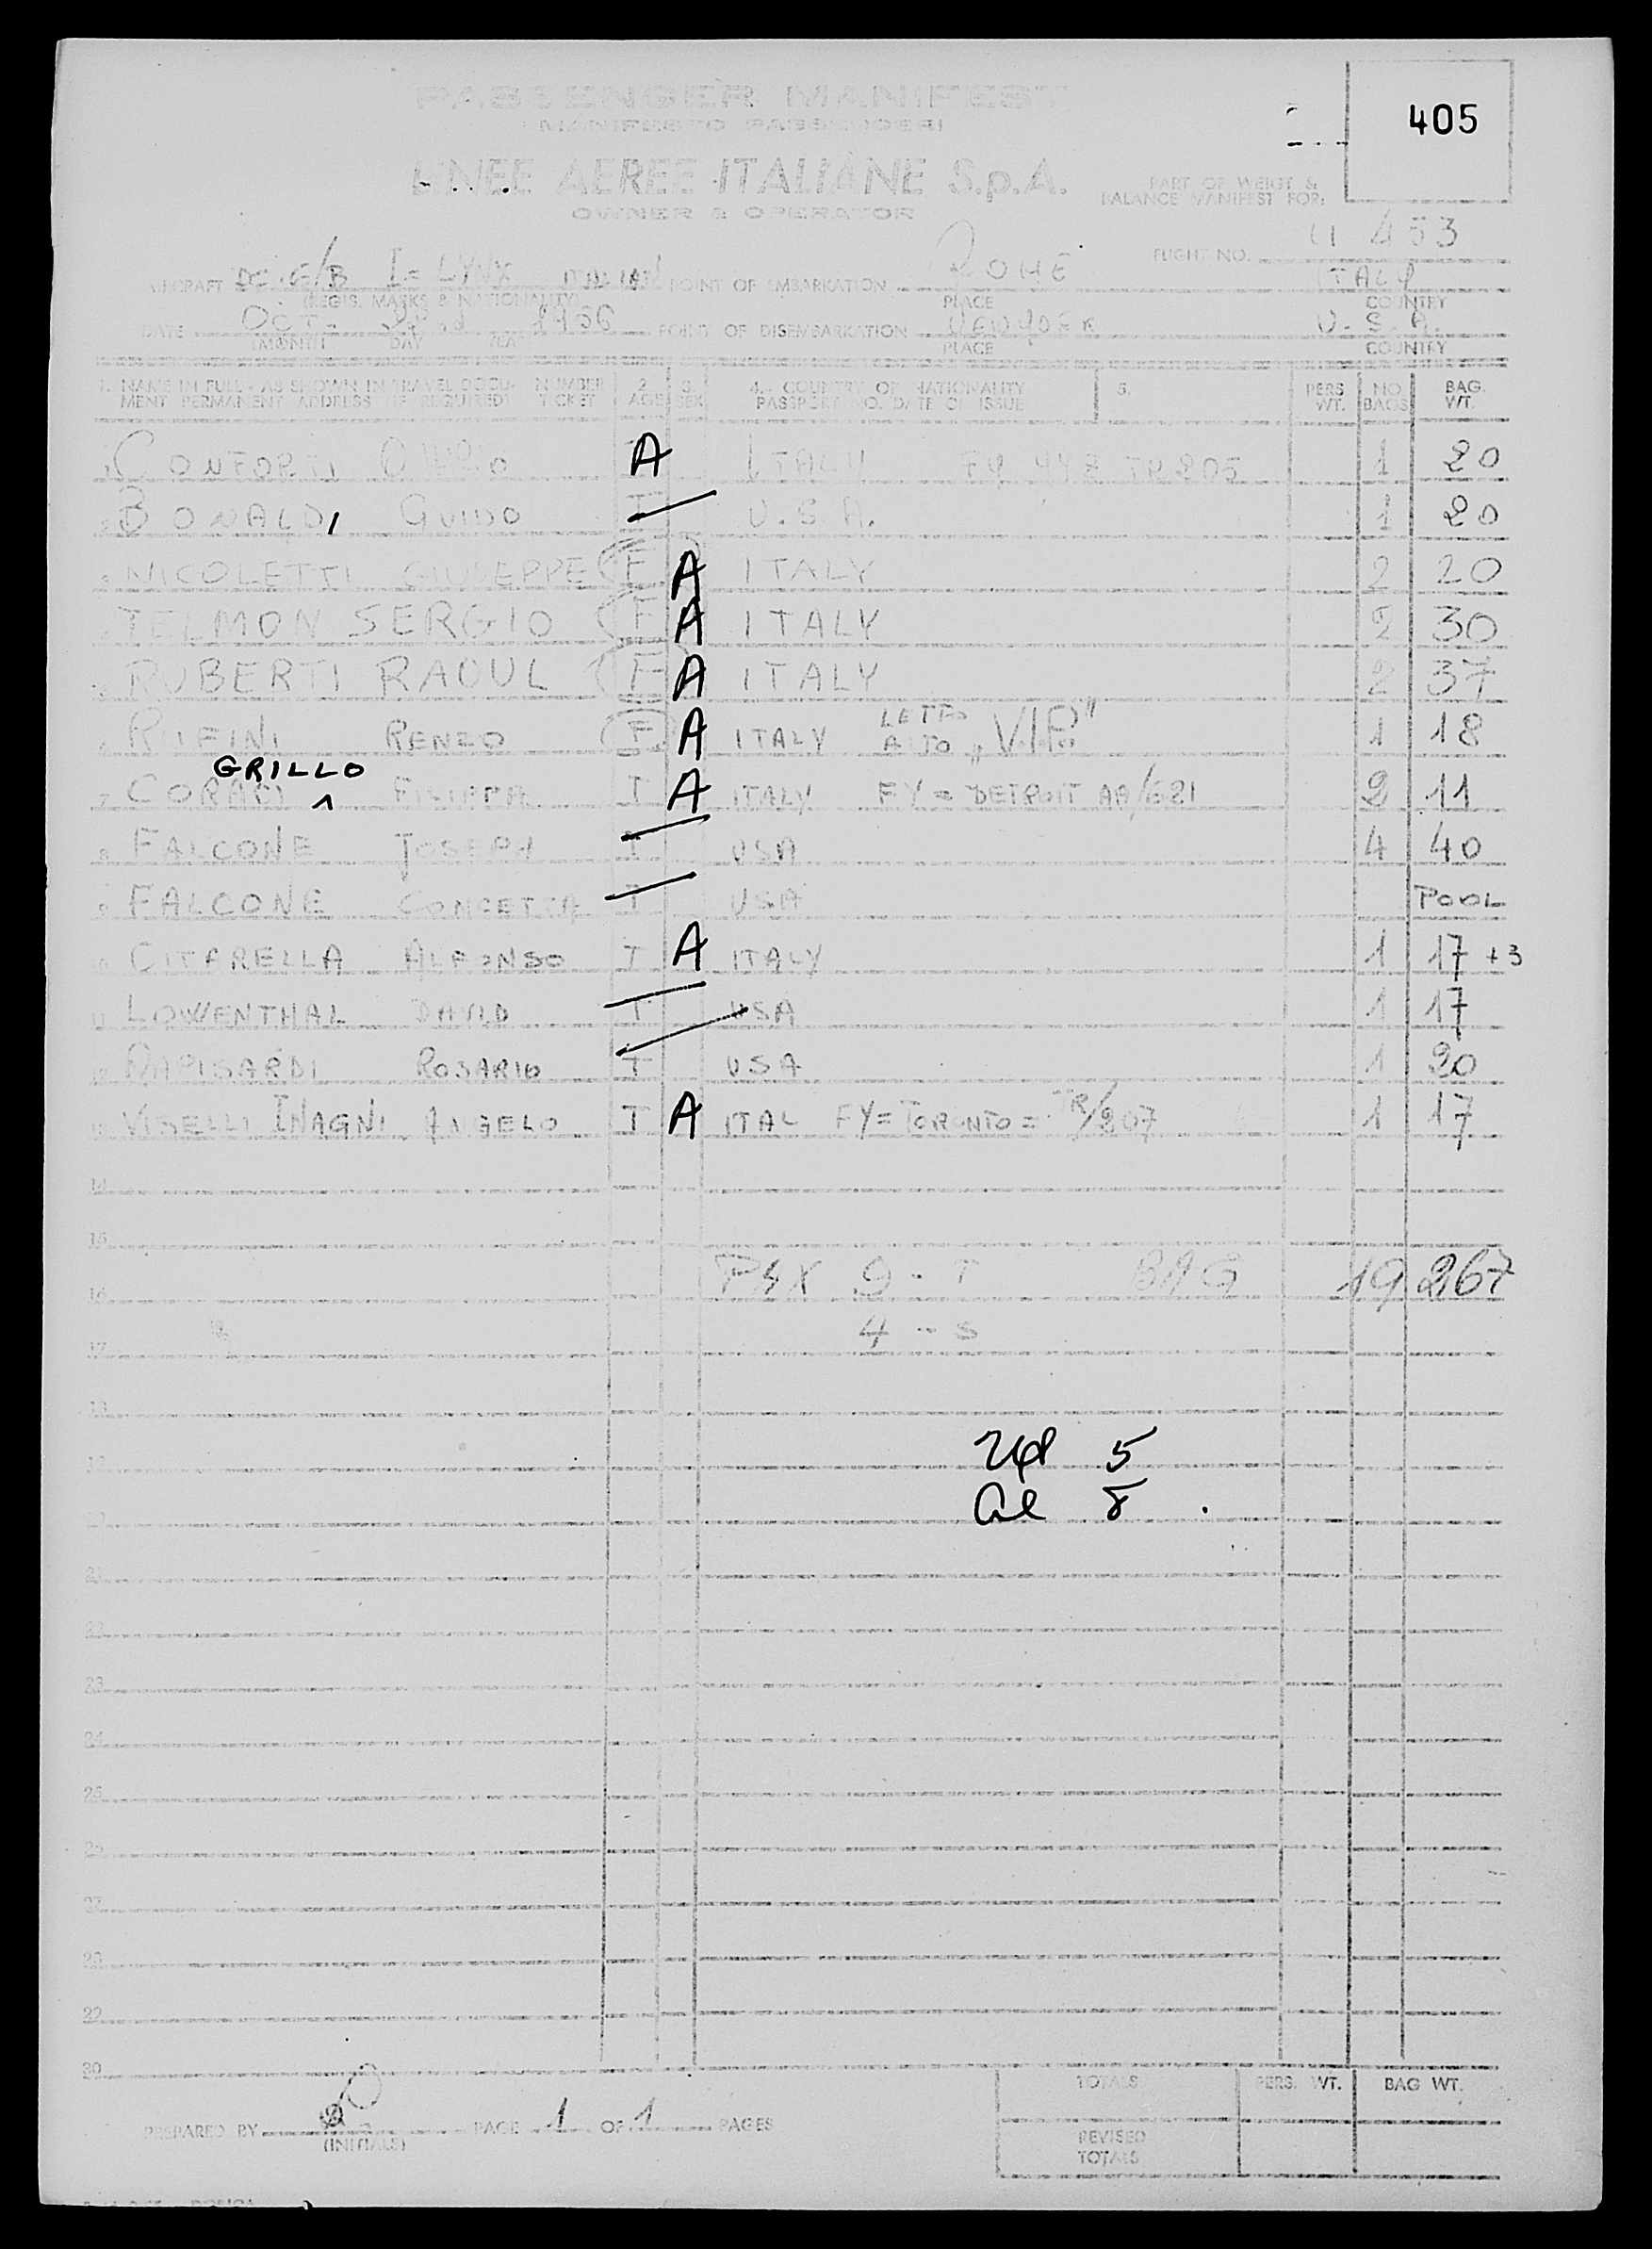 PASSENGER MANIFEST
MANIFESTO PASSEGGERI
405
LINEE AEREE ITALIANE S.p.A.
OWNER & OPERATOR
PART OF WEIGT &
BALANCE MANIFEST FOR:
FLIGHT NO. 453
AIRCRAFT POINT OF EMBARKATION ROME ITALY
(REGIS. MARKS & NATIONALITY) PLACE COUNTRY
DATE OCT. 1956 POINT OF DISEMBARKATION NEW YORK U.S.A.
(MONTH DAY YEAR PLACE COUNTRY
1. NAME IN FULL - AS SHOWN IN TRAVEL DOCU- NUMBER 2. 3. 4. COUNTRY OF NATIONALITY 5. PERS. NO. BAG.
MENT PERMANENT ADDRESS (IF REQUIRED) TICKET AGE SEX PASSPORT NO. DATE OF ISSUE WT. BAGS WT.
CONFORTI A ITALY 1 20
2 BONALDI GUIDO T U.S.A. 1 20
3 NICOLETTI GIUSEPPE F A ITALY 2 20
TELMON SERGIO F A ITALY 2 30
RUBERTI RAOUL F A ITALY 2 37
RENZO F A ITALY LETTO ALTO „VIP" 1 18
GRILLO
7 FILIPPA T A ITALY FY = DETROIT AA/621 2 11
8 FALCONE JOSEPH T USA 4 40
9 FALCONE CONCETTA T USA POOL
10 CITARELLA ALFONSO T A ITALY 1 17 +3
11 LOWENTHAL DAVID T USA 1 17
12 RAPISARDI ROSARIO T USA 1 20
13 ANGELO T A ITAL FY = TORONTO = 207 1 17
14
15
16 PSX 9 - T BAG 19 267
17 4 - S
18
19 5
20 Al 8
21
22
23
24
25
26
27
28
29
30
TOTALS PERS. WT. BAG WT.
PREPARED BY PAGE 1 OF 1 PAGES
(INITIALS)
REVISED
TOTALS